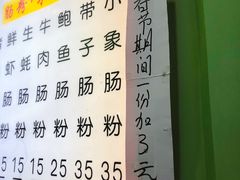 肠粉
鲜虾肠粉 15
生蚝肠粉 15
牛肉肠粉 15
鲍鱼肠粉 25
带子肠粉 35
象肠粉 35
春节期间一份加3元